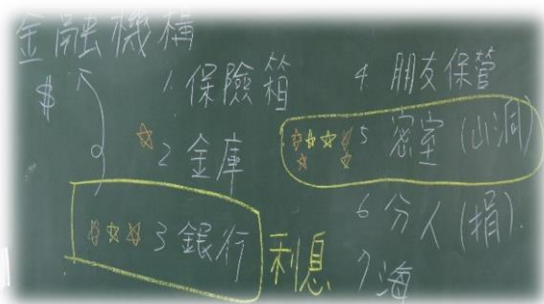 金融機構
$
1 保險箱
2 金庫
3 銀行 利息
4 朋友保管
5 密室 (山洞)
6 分人 (捐)
7 海